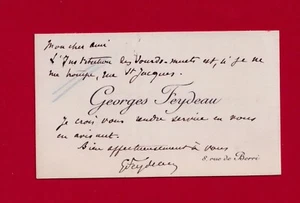 Mon cher ami
L'Institution des Sourds-muets est, si je ne
me trompe, rue St Jacques.
Georges Feydeau
Je crois vous rendre service en vous
en avisant.
Bien affectueusement à vous
GFeydeau
8. rue de Berri